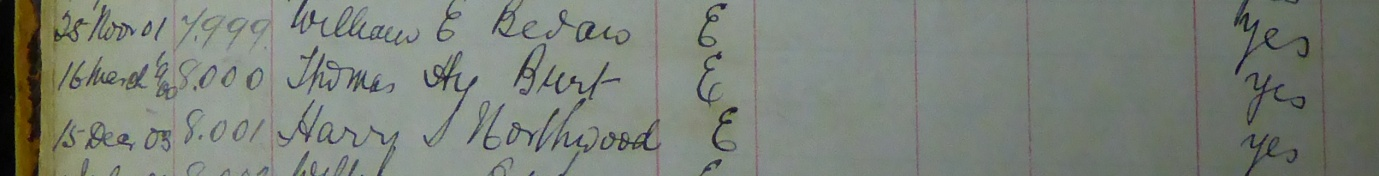 25 Nov 01 7.999 William E Bedaw E yes
16 March 8.000 Thomas Hy Burt E yes
15 Decr 03 8.001 Harry S Northwood E yes